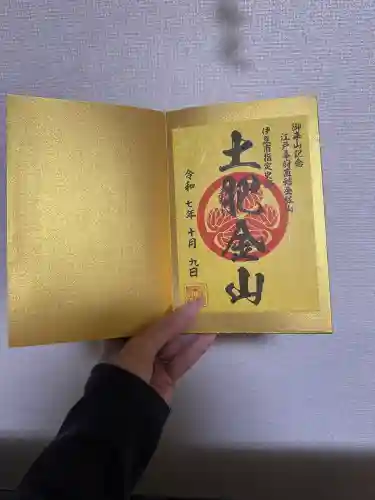 御来山記念
江戸幕府直轄金銀山
伊豆市指定史跡
土肥金山
令和七年十月九日